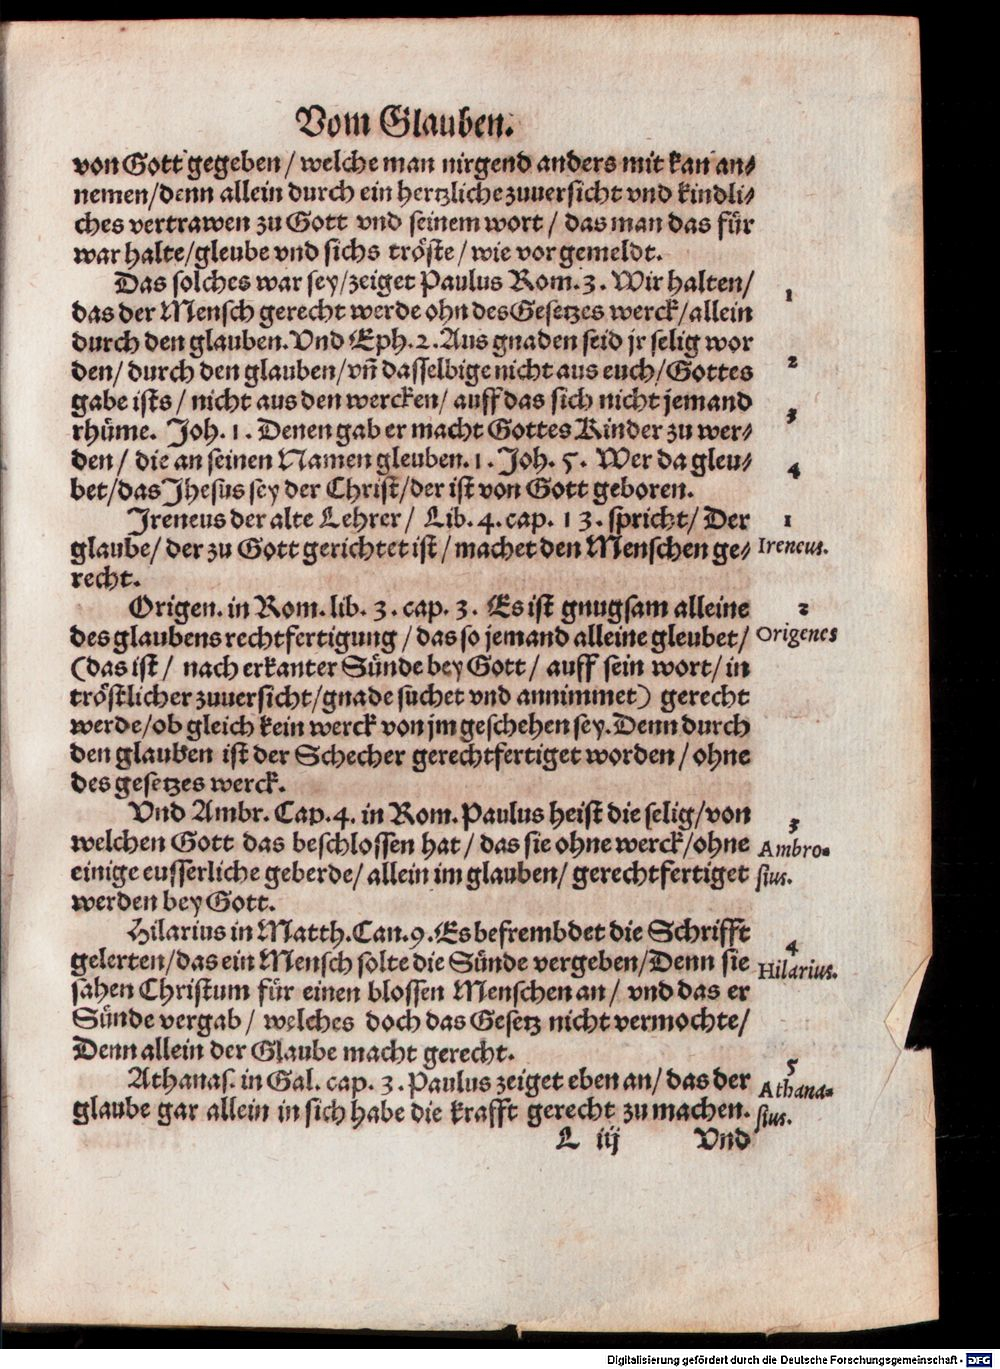 Vom Glauben.
von Gott gegeben / welche man nirgend anders mit kan an⸗
nemen/denn allein durch ein hertzliche zuuersicht vnd kindli⸗
ches vertrawen zu Gott vnd seinem wort / das man das für
war halte/gleube vnd sichs tröste / wie vor gemeldt.
Das solches war sey/zeiget Paulus Rom. 3. Wir halten/
1
das der Mensch gerecht werde ohn des Gesetzes werck/allein
durch den glauben. Vnd Eph. 2. Aus gnaden seid jr selig wor
2
den/ durch den glauben/vñ dasselbige nicht aus euch/Gottes
gabe ists / nicht aus den wercken/ auff das sich nicht jemand
3
rhüme. Joh. 1. Denen gab er macht Gottes Kinder zu wer⸗
den/ die an seinen Namen gleuben. 1. Joh. 5. Wer da gleu⸗
4
bet/das Jhesus sey der Christ/der ist von Gott geboren.
Jreneus der alte Lehrer/ Lib. 4. cap. 13. spricht/ Der
1
glaube/ der zu Gott gerichtet ist / machet den Menschen ge⸗
Ireneus.
recht.
Origen. in Rom. lib. 3. cap. 3. Es ist gnugsam alleine
2
des glaubens rechtfertigung / das so jemand alleine gleubet/
Origenes
(das ist / nach erkanter Sünde bey Gott / auff sein wort/ in
tröstlicher zuuersicht/gnade suchet vnd annimmet) gerecht
werde/ob gleich kein werck von jm geschehen sey. Denn durch
den glauben ist der Schecher gerechtfertiget worden / ohne
des gesetzes werck.
Vnd Ambr. Cap. 4. in Rom. Paulus heist die selig/von
3
welchen Gott das beschlossen hat / das sie ohne werck/ohne
Ambro⸗
einige eusserliche geberde/ allein im glauben/ gerechtfertiget
sius.
werden bey Gott.
Hilarius in Matth. Can. 9. Es befrembdet die Schrifft
4
gelerten/das ein Mensch solte die Sünde vergeben/Denn sie
Hilarius.
sahen Christum für einen blossen Menschen an/ vnd das er
Sünde vergab/ welches doch das Gesetz nicht vermochte/
Denn allein der Glaube macht gerecht.
Athanas. in Gal. cap. 3. Paulus zeiget eben an/ das der
5
Athana⸗
glaube gar allein in sich habe die krafft gerecht zu machen.
sius.
L iij Vnd
Digitalisierung gefördert durch die Deutsche Forschungsgemeinschaft - DFG